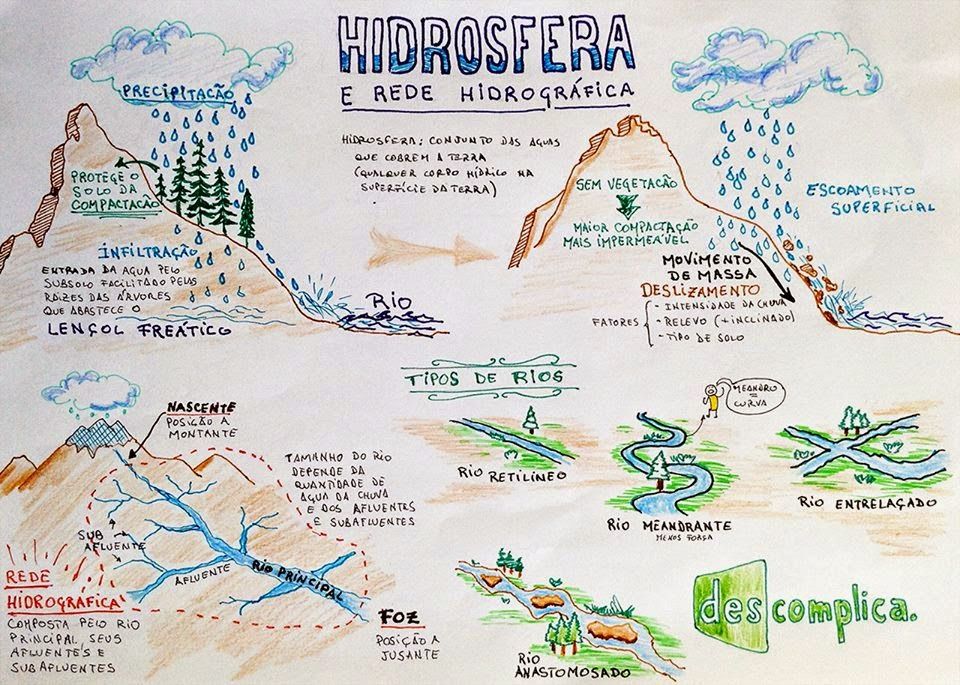 HIDROSFERA
E REDE HIDROGRÁFICA
PRECIPITAÇÃO
HIDROSFERA: CONJUNTO DAS AGUAS
QUE COBREM A TERRA
(QUALQUER CORPO HÍDRICO NA
SUPERFÍCIE DA TERRA)
PROTEGE O
SOLO DA
COMPACTACÃO
INFILTRAÇÃO
ENTRADA DA AGUA PELO
SUBSOLO FACILITADO PELAS
RAÍZES DAS ÁRVORES
QUE ABASTECE O
LENÇOL FREÁTICO
RIO
SEM VEGETAÇÃO
MAIOR COMPACTAÇÃO
MAIS IMPERMEÁVEL
ESCOAMENTO
SUPERFICIAL
MOVIMENTO
DE MASSA
DESLIZAMENTO
FATORES
- INTENSIDADE DA CHUVA
- RELEVO (+INCLINADO)
- TIPO DE SOLO
NASCENTE
POSIÇÃO A
MONTANTE
TAMANHO DO RIO
DEPENDE DA
QUANTIDADE DE
AGUA DA CHUVA
E DOS AFLUENTES
E SUBAFLUENTES
SUB
AFLUENTE
AFLUENTE
RIO PRINCIPAL
REDE
HIDROGRAFICA
COMPOSTA PELO RIO
PRINCIPAL, SEUS
AFLUENTES E
SUBAFLUENTES
FOZ
POSIÇÃO A
JUSANTE
TIPOS DE RIOS
RIO RETILÍNEO
MEANDRO
=
CURVA
RIO MEANDRANTE
MENOS FORÇA
RIO ENTRELAÇADO
RIO
ANASTOMOSADO
descomplica.